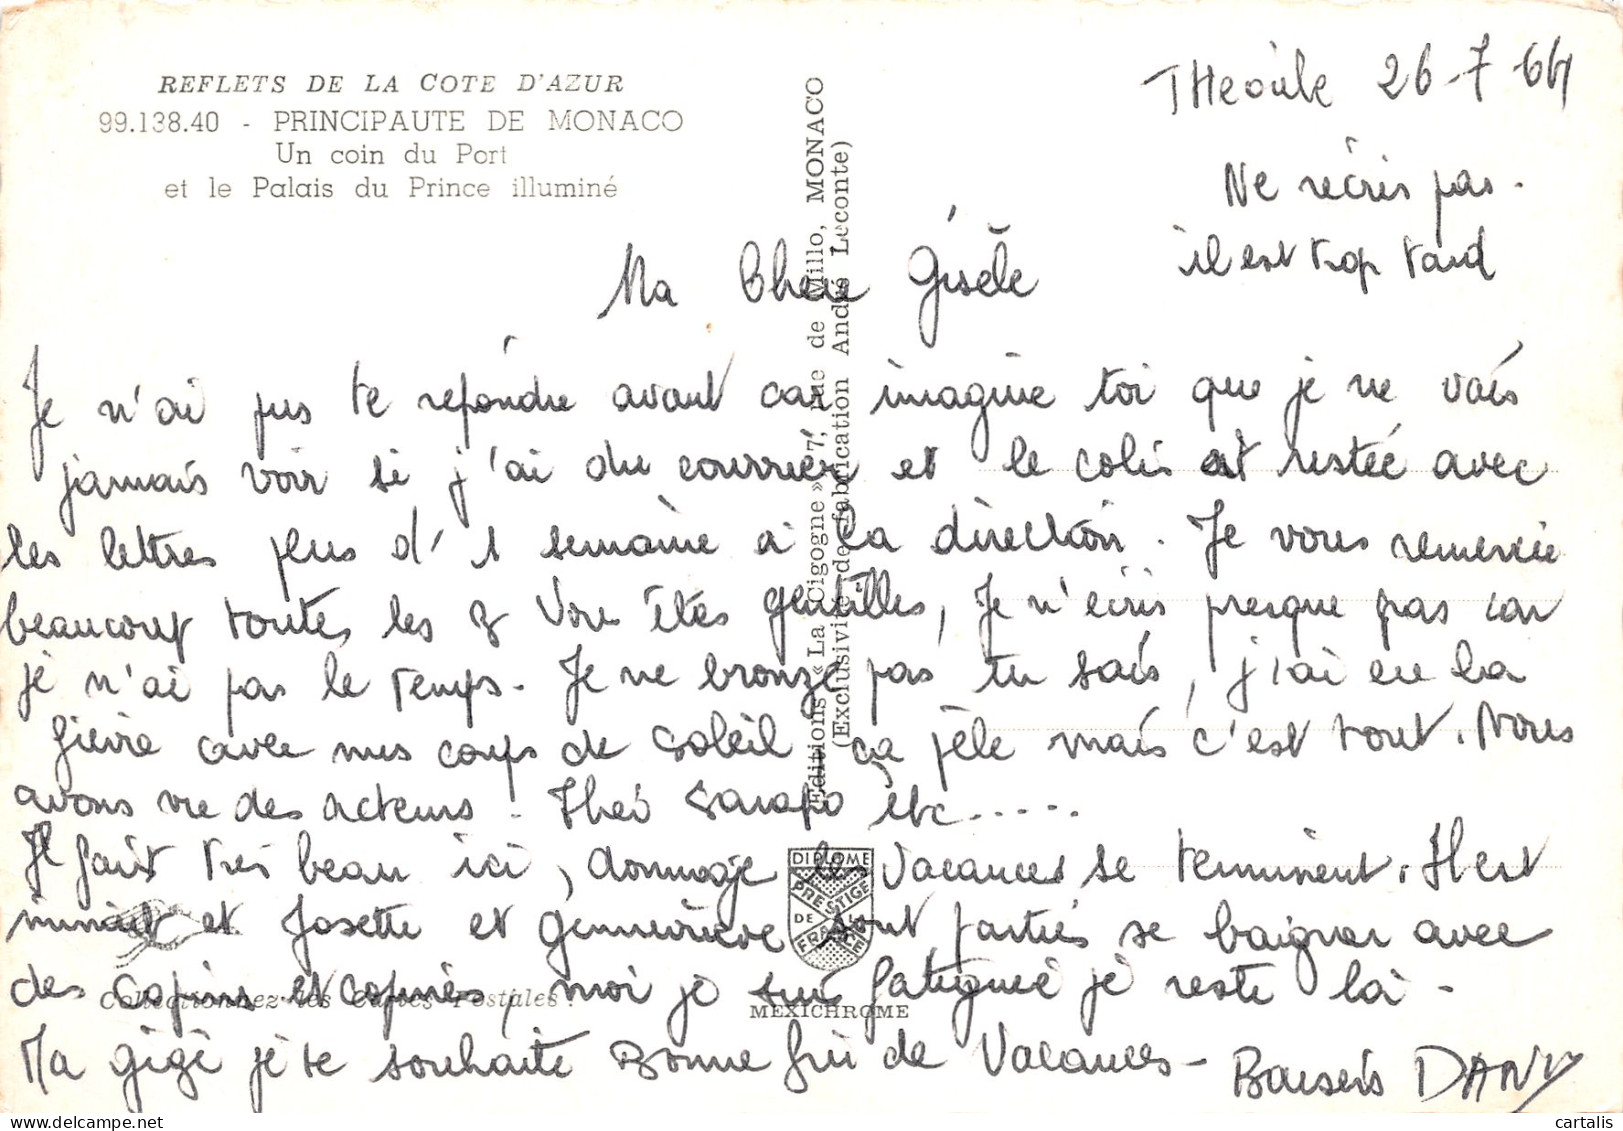 REFLETS DE LA COTE D'AZUR
99.138.40 - PRINCIPAUTE DE MONACO
Un coin du Port
et le Palais du Prince illuminé
THeoule 26-7-64
Ne récris pas.
il est trop tard
Ma Chère Gisèle
Je n'ai pus te répondre avant car imagine toi que je ne vais
jamais voir si j'ai du courrier et le colis est restée avec
les lettres plus d'1 semaine à la direction. Je vous remercie
beaucoup toutes les 3 Vous êtes gentilles, Je n'écris presque pas car
je n'ai pas le temps. Je ne bronze pas tu sais, j'ai eu la
fièvre avec mes coups de soleil ça pèle mais c'est tout. Nous
avons vu des acteurs. Théo Sarapo etc.....
Il fait très beau ici, dommage les vacances se terminent. Il est
minuit et Josette et Geneviève sont parties se baigner avec
des copins et copines, moi je suis fatiguée je reste là -
Ma gigi je te souhaite Bonne fin de Vacances - Baisers DANY
Editions « La Cigogne » 7, rue de Millo, MONACO
(Exclusivité de fabrication André Leconte)
DIPLOME
PRESTIGE
DE LA
FRANCE
MEXICHROME
Collectionnez les Cartes Postales !
cartalis
delcampe.net